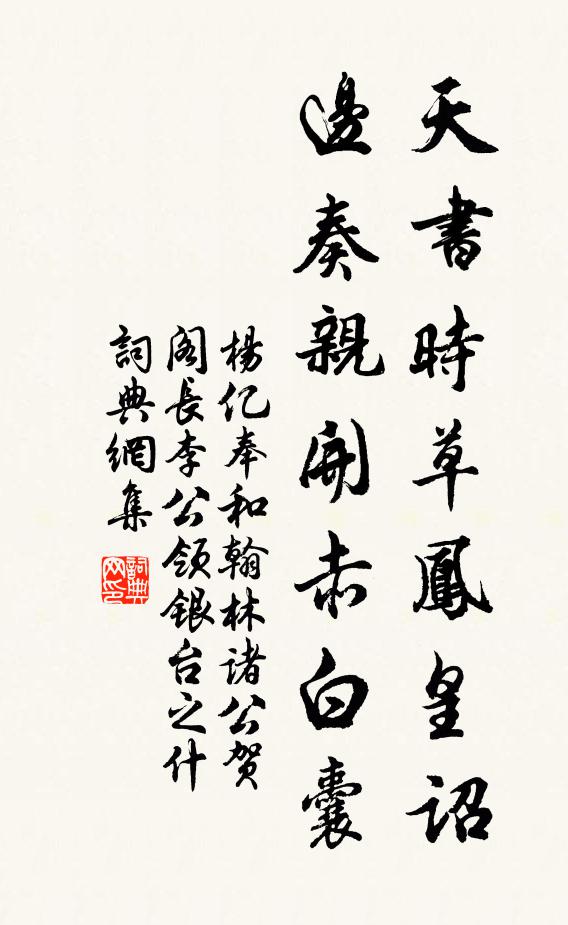 天書時草鳳皇詔
邊奏親開赤白囊
楊亿奉和翰林諸公賀
閣長李公領銀台之什
詞典網集
詞典
网印